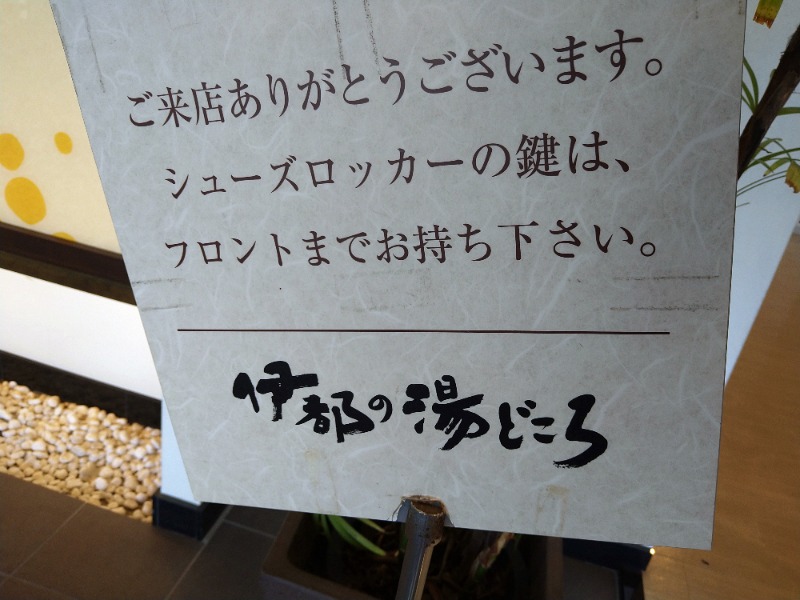 ご来店ありがとうございます。
シューズロッカーの鍵は、
フロントまでお持ち下さい。
伊都の湯どころ